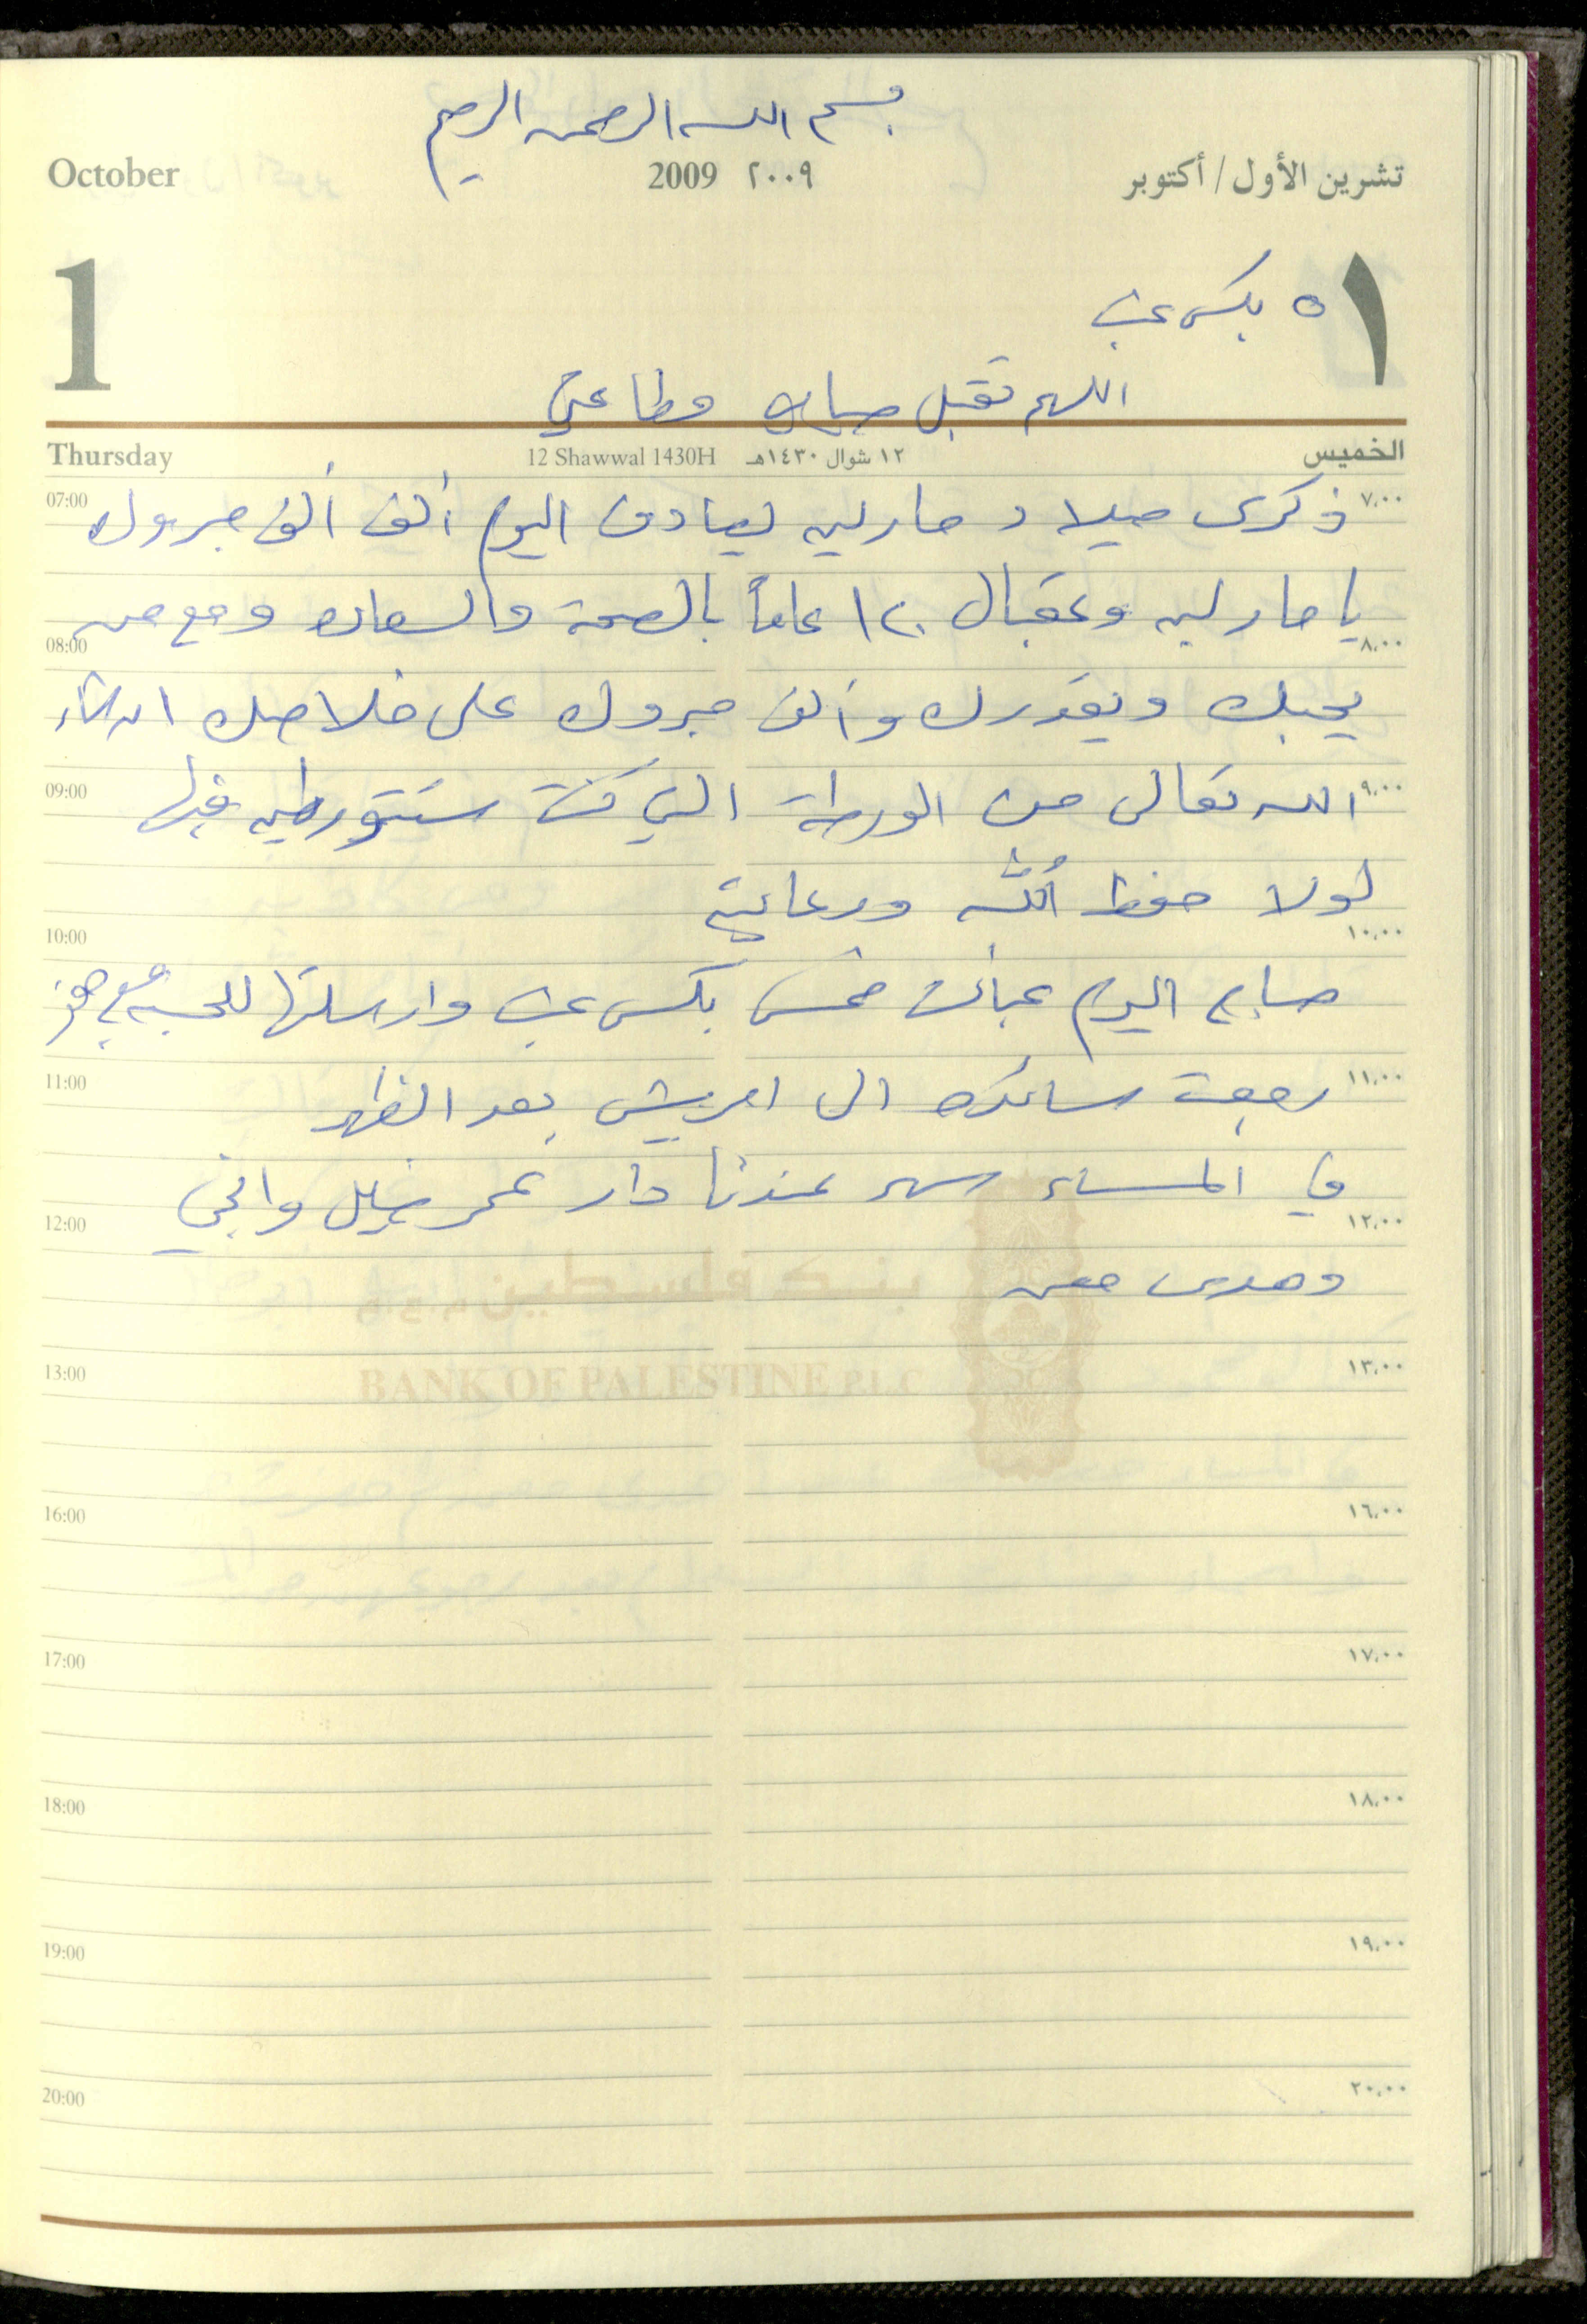 بسم الله الرحمن الرحيم
October 2009 ٢٠٠٩ تشرين الأول / أكتوبر
1 ١
٥ بكس عنب
اللهم تقبل صيامي وطاعتي
Thursday 12 Shawwal 1430H ١٢ شوال ١٤٣٠هـ الخميس
07:00 ذكرى ميلاد مارلين يصادف اليوم ألف ألف مبروك ٧،٠٠
يا مارلين وعقبال ١٢٠ عاماً بالصحة والسعادة ومع من
08:00 ٨،٠٠
يحبك ويقدرك وألف مبروك على خلاصك ان شاء
09:00 الله تعالى من الورطة التي كنت ستتورطين فيها ٩،٠٠
لولا حفظ الله ورعايته
10:00 ١٠،٠٠
صباح اليوم عبأت خمس بكس عنب وارسلتها للحسبة مع
11:00 رجعت سائدة الى العريش بعد الظهر ١١،٠٠
في المساء سهر عندنا دار عمر
12:00 ١٢،٠٠
وهدى معهم
بنك فلسطين
13:00 ١٣،٠٠
BANK OF PALESTINE P.L.C
16:00 ١٦،٠٠
17:00 ١٧،٠٠
18:00 ١٨،٠٠
19:00 ١٩،٠٠
20:00 ٢٠،٠٠